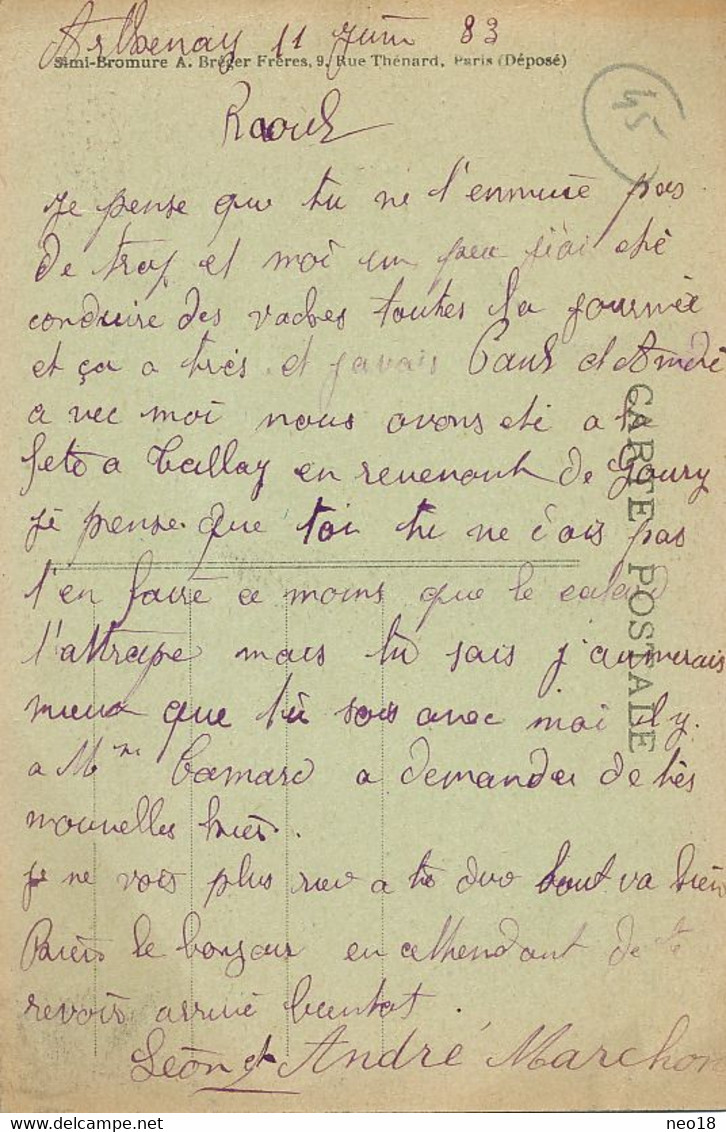 Arthenay 11 juin 83
Simi-Bromure A. Breger Frères, 9, Rue Thénard, Paris (Déposé)
45
Raoul
Je pense que tu ne t'ennuie pas
de trop et moi un peu j'ai eté
conduire des vaches toutes la journée
et ça a très et javais Paul et André
avec moi nous avons eté a la
fete a Tallay en revenant de Goury
je pense que toi tu ne dois pas
t'en faire a moins que le cafard
t'attrape mais tu sais j'aimerais
mieux que tu sois avec moi il y
a Mme Camard a demander de tes
nouvelles hier.
je ne vois plus rien a te dire tout va bien
bien le bonjour en attendant de te
revoir arrive bientot.
Léon et André Marchon
CARTE POSTALE
neo18